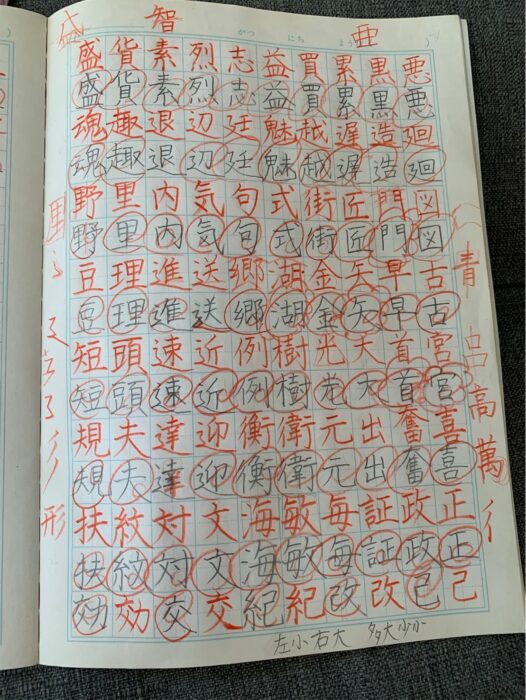 盛 智 亜
がつ にち よう
盛貨素烈志益買累黒悪
盛貨素烈志益買累黒悪
魂趣退辺廷魅越遅造廻
魂趣退辺廷魅越遅造廻
野里内気句式街匠門図
野里内気句式街匠門図
豆理進送郷湖金矢早古
豆理進送郷湖金矢早古
短頭速近例樹光大首宮
短頭速近例樹光大首宮
規夫達迎衡衛元出奮喜
規夫達迎衡衛元出奮喜
扶紋対文海敏毎証政正
扶紋対文海敏毎証政正
効効交交紀紀改改己己
里
形
青
呂
高
萬
彳
左小右大 多大少小